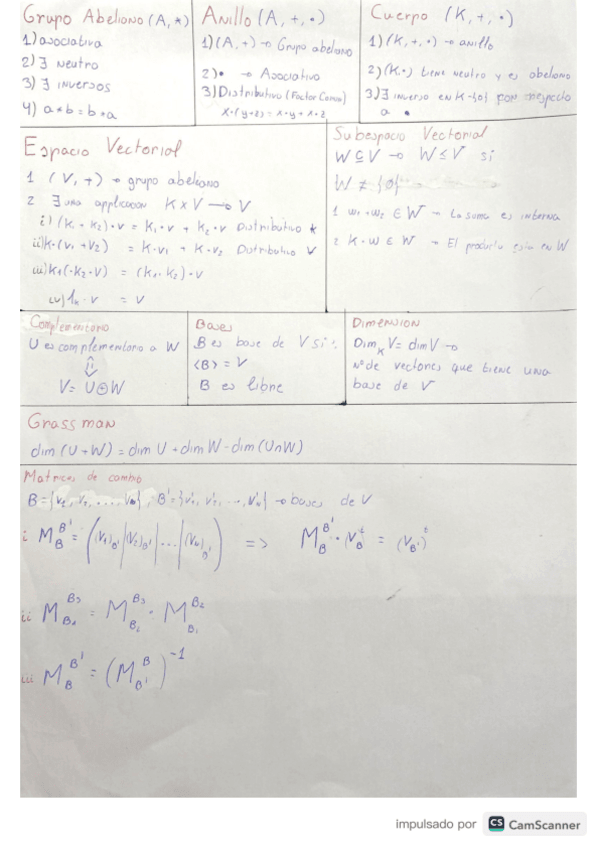 Grupo Abeliano (A, *)
1) asociativa
2) ∃ neutro
3) ∃ inversos
4) a * b = b * a
Anillo (A, +, •)
1) (A, +) → Grupo abeliano
2) • → Asociativo
3) Distributivo (Factor Comun)
x•(y+z) = x•y + x•z
Cuerpo (K, +, •)
1) (K, +, •) → anillo
2) (K, •) tiene neutro y es abeliano
3) ∃ inverso en K-{0} por respecto
a •
Espacio Vectorial
1 (V, +) → grupo abeliano
2 ∃ una aplicacion K x V → V
i) (K₁ + K₂)•v = K₁•v + K₂•v Distributivo K
ii) K•(V₁ + V₂) = K•V₁ + K•V₂ Distributivo V
iii) K₁(•K₂•V) = (K₁•K₂)•V
iv) 1ₖ•v = v
Subespacio Vectorial
W ⊆ V → W ≤ V si
W ≠ {0}
1 w₁+w₂ ∈ W → La suma es interna
2 K•w ∈ W → El producto esta en W
Complementario
U es complementario a W
⇕
V = U⊕W
Bases
B es base de V si:
⟨B⟩ = V
B es libre
Dimension
Dimₖ V = dim V →
Nº de vectores que tiene una
base de V
Grassman
dim (U+W) = dim U + dim W - dim (U∩W)
Matrices de cambio
B = {v₁, v₂, ..., vₙ}, B' = {v'₁, v'₂, ..., v'ₙ} → bases de V
i M_B^B' = ((V₁)_B' | (V₂)_B' | ... | (Vₙ)_B') => M_B^B' • (V_B)^t = (V_B')^t
ii M_B₁^B₃ = M_B₂^B₃ • M_B₁^B₂
iii M_B^B' = (M_B'^B)^-1
impulsado por CS CamScanner